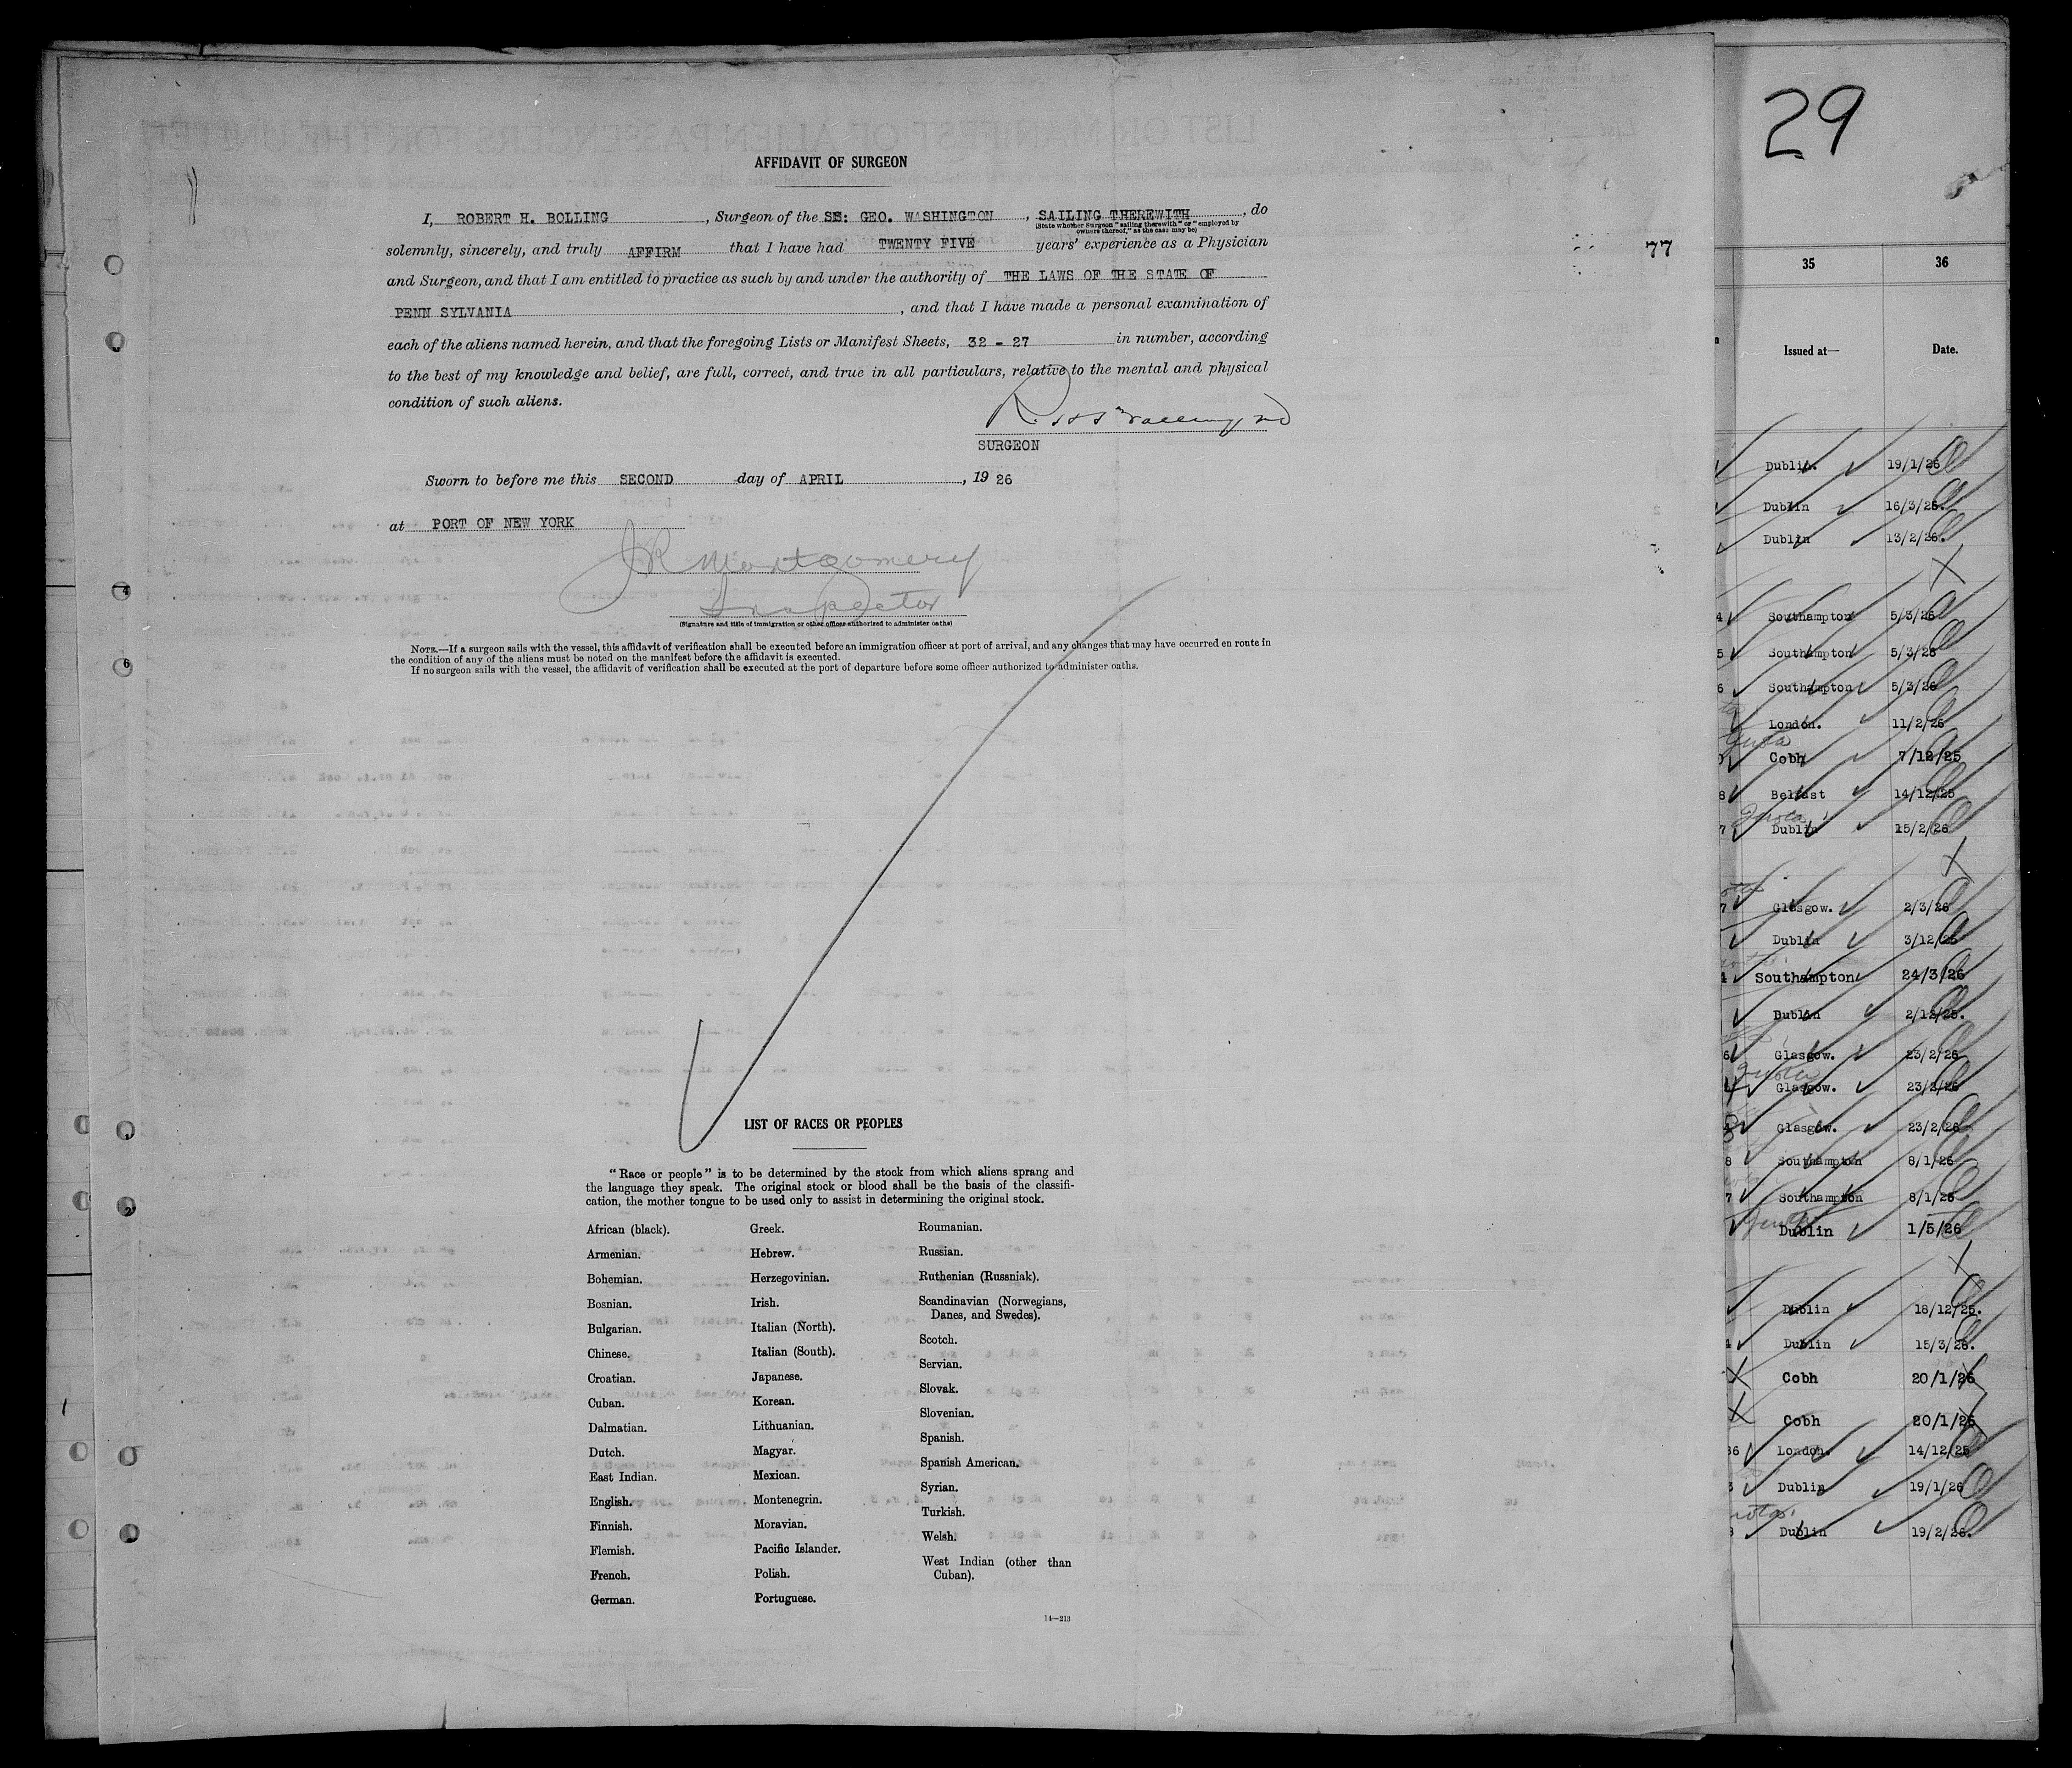 29
AFFIDAVIT OF SURGEON
I, ROBERT H. BOLLING, Surgeon of the SS: GEO. WASHINGTON, SAILING THEREWITH, do
(State whether Surgeon "sailing therewith" or "employed by
owners thereof," as the case may be)
solemnly, sincerely, and truly AFFIRM that I have had TWENTY FIVE years' experience as a Physician
77
and Surgeon, and that I am entitled to practice as such by and under the authority of THE LAWS OF THE STATE OF
PENN SYLVANIA, and that I have made a personal examination of
each of the aliens named herein, and that the foregoing Lists or Manifest Sheets, 32 - 27 in number, according
to the best of my knowledge and belief, are full, correct, and true in all particulars, relative to the mental and physical
condition of such aliens.
SURGEON
Sworn to before me this SECOND day of APRIL, 19 26
at PORT OF NEW YORK
JR Montgomery
Inspector
(Signature and title of immigration or other officer authorized to administer oaths)
NOTE.—If a surgeon sails with the vessel, this affidavit of verification shall be executed before an immigration officer at port of arrival, and any changes that may have occurred en route in
the condition of any of the aliens must be noted on the manifest before the affidavit is executed.
If no surgeon sails with the vessel, the affidavit of verification shall be executed at the port of departure before some officer authorized to administer oaths.
LIST OF RACES OR PEOPLES
"Race or people" is to be determined by the stock from which aliens sprang and
the language they speak. The original stock or blood shall be the basis of the classifi-
cation, the mother tongue to be used only to assist in determining the original stock.
African (black).
Armenian.
Bohemian.
Bosnian.
Bulgarian.
Chinese.
Croatian.
Cuban.
Dalmatian.
Dutch.
East Indian.
English.
Finnish.
Flemish.
French.
German.
Greek.
Hebrew.
Herzegovinian.
Irish.
Italian (North).
Italian (South).
Japanese.
Korean.
Lithuanian.
Magyar.
Mexican.
Montenegrin.
Moravian.
Pacific Islander.
Polish.
Portuguese.
Roumanian.
Russian.
Ruthenian (Russniak).
Scandinavian (Norwegians,
Danes, and Swedes).
Scotch.
Servian.
Slovak.
Slovenian.
Spanish.
Spanish American.
Syrian.
Turkish.
Welsh.
West Indian (other than
Cuban).
14—213
35 36
Issued at— Date.
Dublin. 19/1/26
Dublin 16/3/26.
Dublin 13/2/26.
Southampton 5/3/26
Southampton 5/3/26
Southampton 5/3/26
London. 11/2/26
Cobh 7/12/25
Belfast 14/12/25
Dublin 15/2/26
Glasgow. 2/3/26
Dublin 3/12/25
Southampton 24/3/26
Dublin 2/12/25.
Glasgow. 23/2/26
Glasgow. 23/2/26
Glasgow. 23/2/26
Southampton 8/1/26
Southampton 8/1/26
Dublin 1/5/26
Dublin 18/12/25.
Dublin 15/3/26.
Cobh 20/1/26
Cobh 20/1/26
London. 14/12/25
Dublin 19/1/26
Dublin 19/2/26.